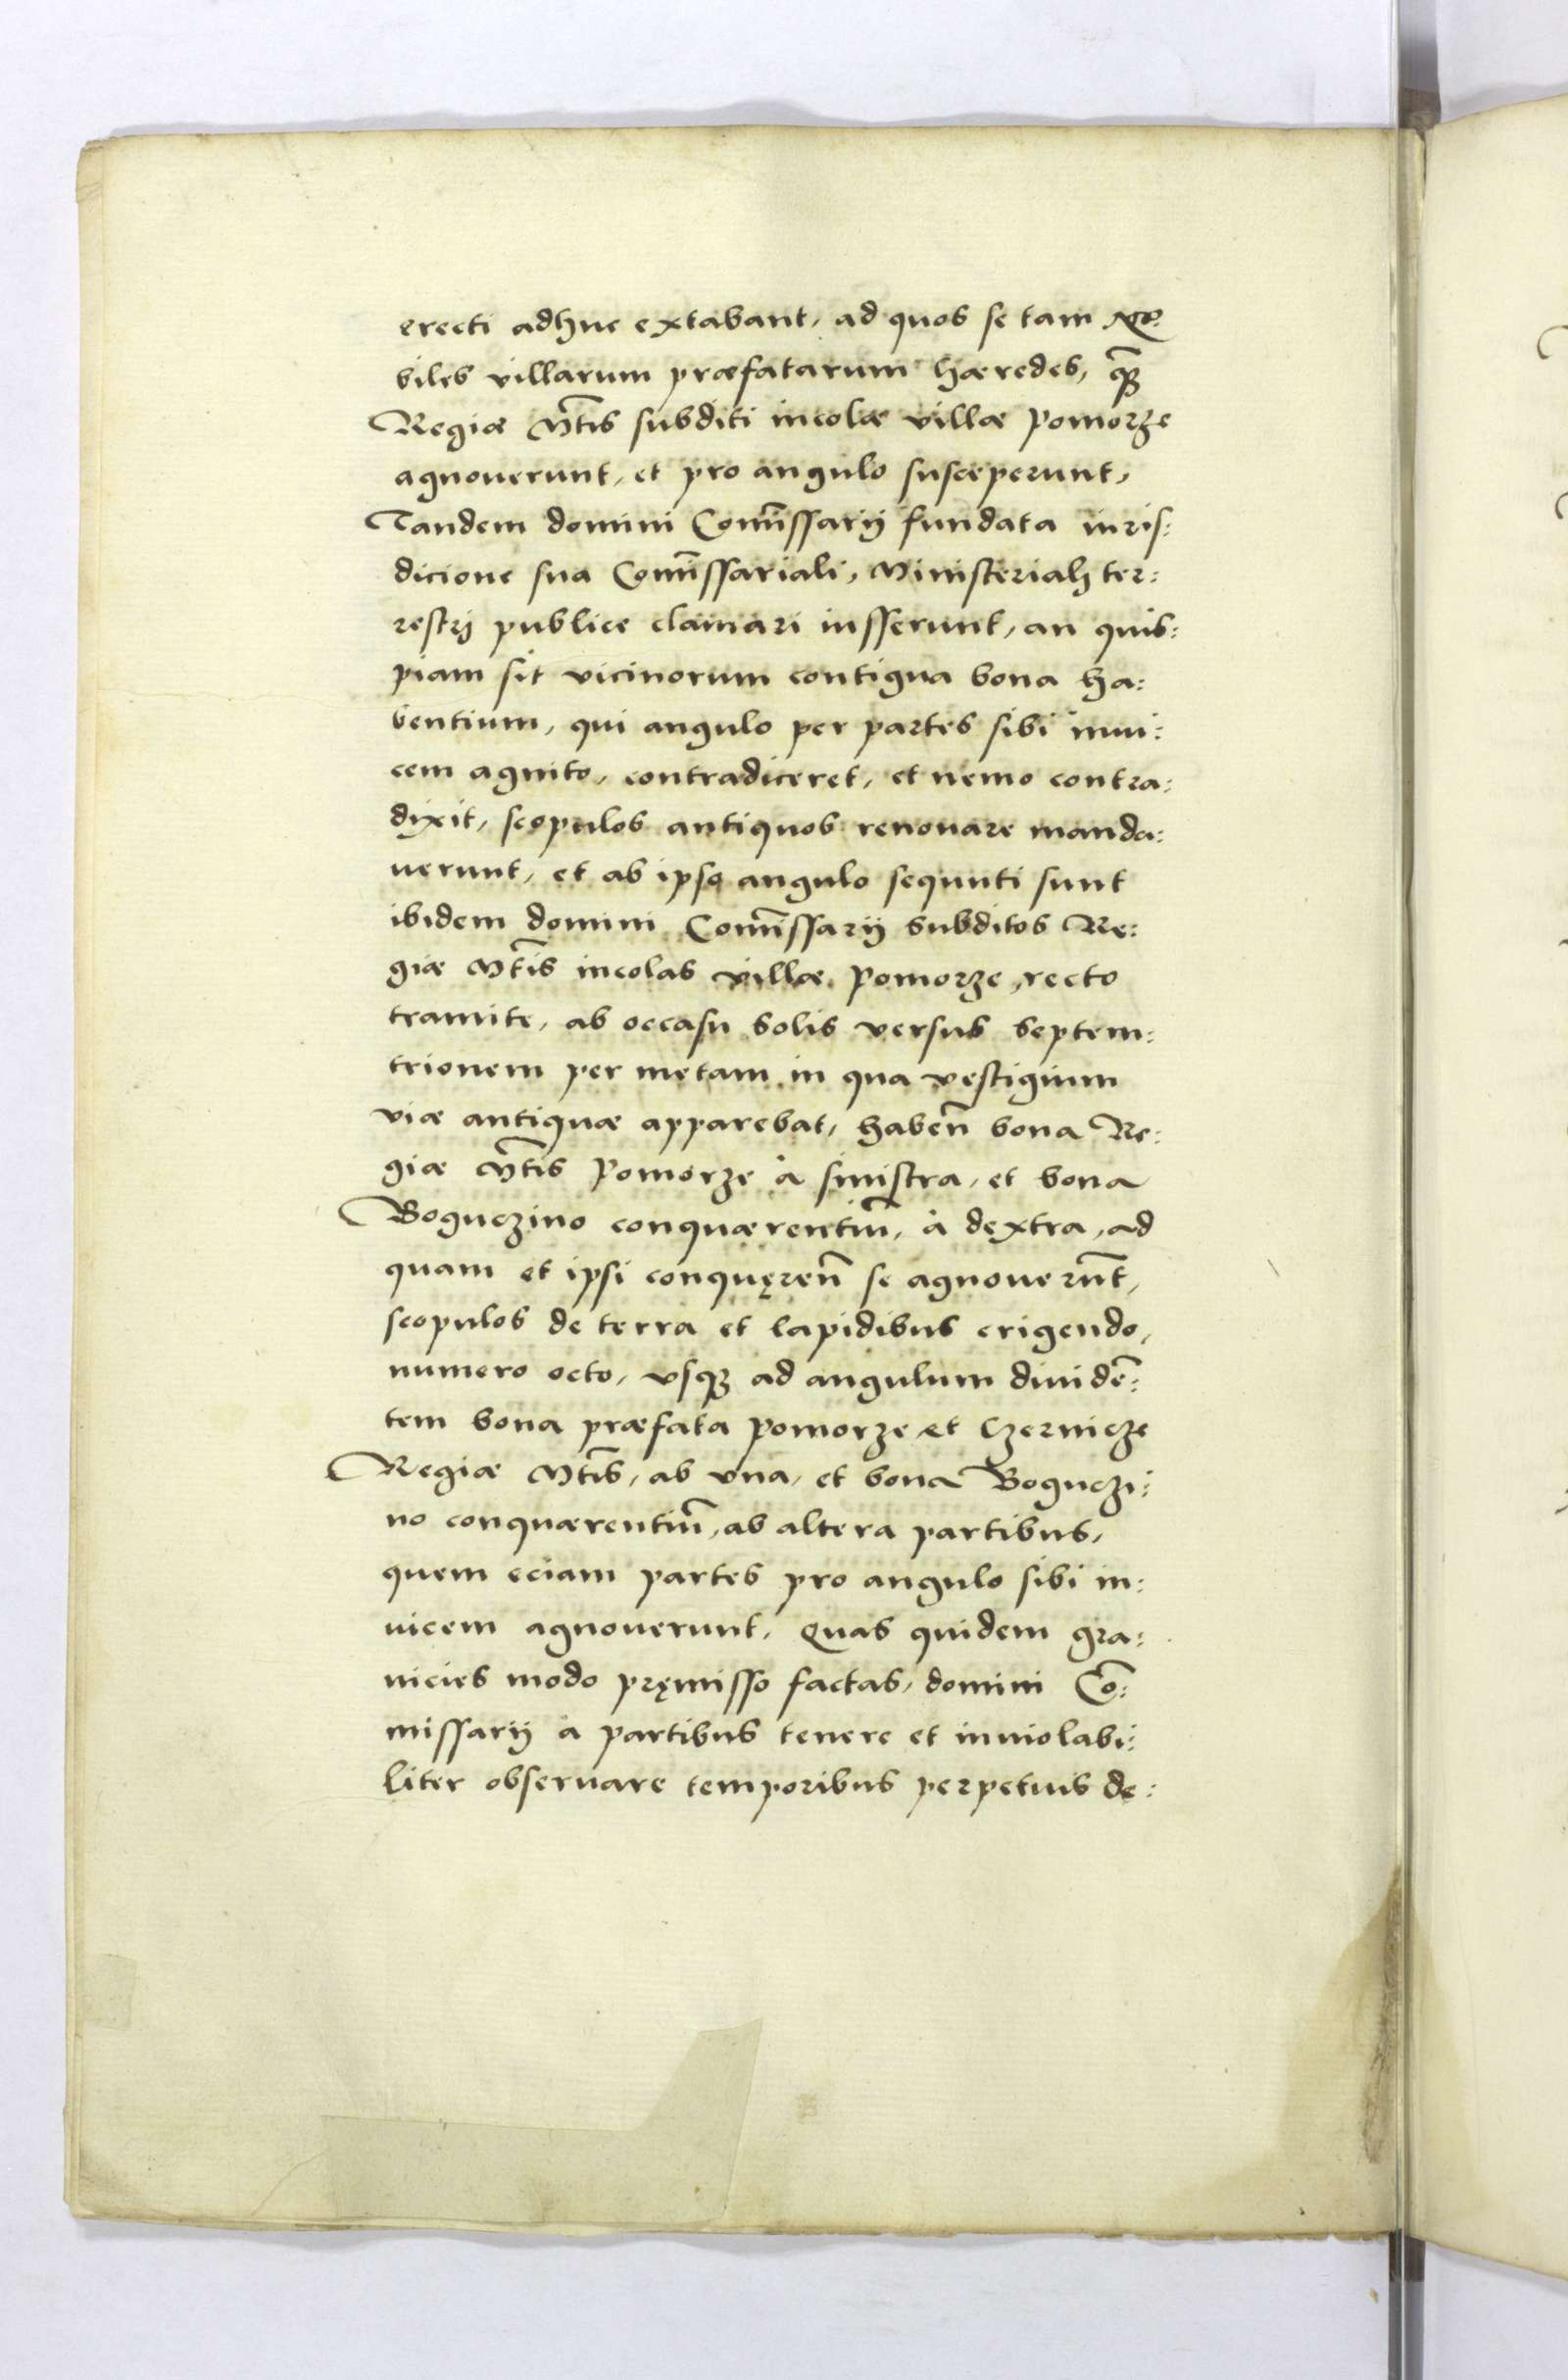 erecti adhuc extabant, ad quos se tam No:
biles villarum præfatarum hæredes, quãꝫ
Regiæ Mtis subditi incolæ villæ Pomorze
agnouerunt, et pro angulo susceperunt,
Tandem domini Com̃issarij fundata iuris:
dicione sua Com̃issariali, Ministeriali ter:
restrj publice clamari iusserunt, an quis:
piam sit vicinorum contigua bona ha:
bentium, qui angulo per partes sibi inui:
cem agnito, contradiceret, et nemo contra:
dixit, scopulos antiquos renouare manda:
uerunt, et ab ipso angulo sequuti sunt
ibidem domini Com̃issarij subditos Re:
giæ Mtis incolas villæ Pomorze, recto
tramite, ab occasu solis versus septem:
trionem per metam in qua vestigium
viæ antiquæ apparebat, habeñ bona Re:
giæ Mtis Pomorze à sinistra, et bona
Boguczino conquærentiũ, à dextra, ad
quam et ipsi conquęreñ se agnouerũt,
scopulos de terra et lapidibus erigendo,
numero octo, vsqꝫ ad angulum diuidẽ:
tem bona præfata Pomorze et Czernicze
Regiæ Mtis, ab vna, et bona Boguczi:
no conquærentiũ, ab altera partibus,
quem eciam partes pro angulo sibi in:
uicem agnouerunt, Quas quidem gra:
nicies modo pręmisso factas, domini Cõ:
missarij a partibus tenere et inuiolabi:
liter obseruare temporibus perpetuis de: